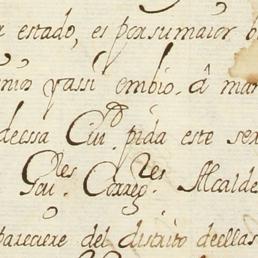 estado, es por su maior b
nio y assi embio â man
dessa Ciu.d pida este ser
Gou.les Correg.res Alcalde
pareciere del distrito dellas